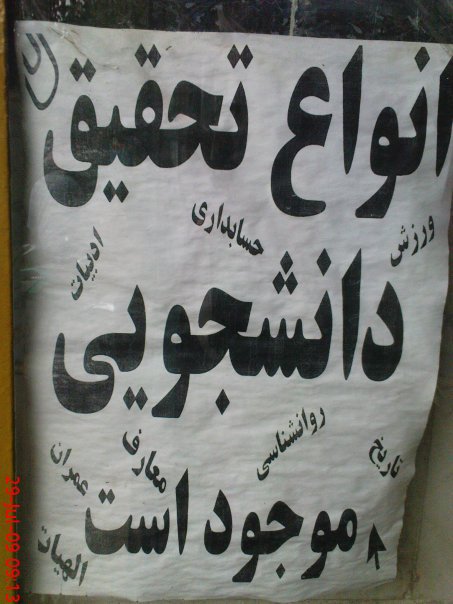 انواع تحقیق
ورزش
حسابداری
ادبیات
دانشجویی
تاریخ
روانشناسی
معارف
عمران
موجود است
الهیات